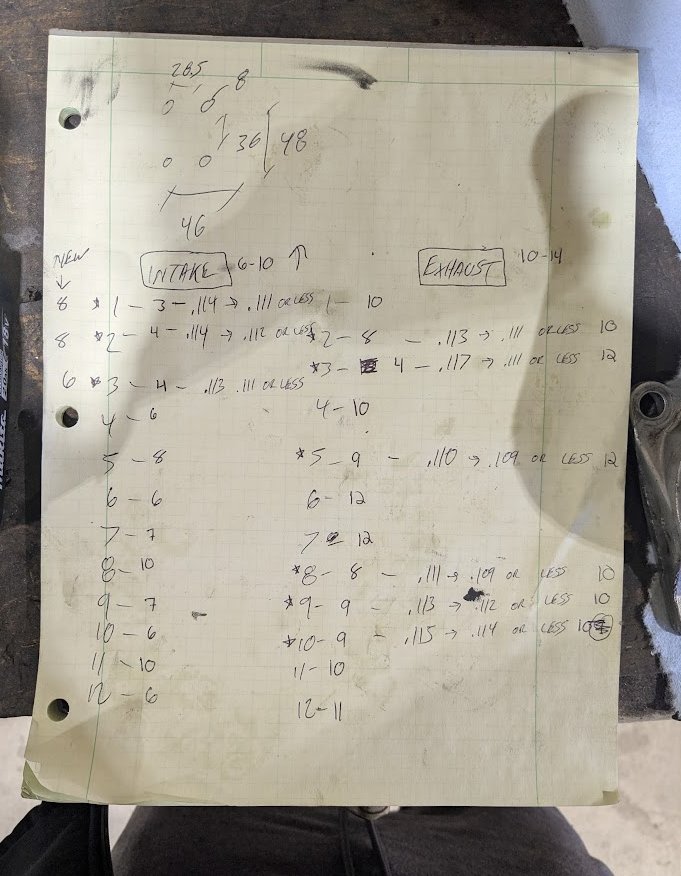 28.5
8
36 48
46
NEW
↓
INTAKE 6-10 ↑
EXHAUST 10-14
8 * 1 - 3 - .114 → .111 OR LESS 1 - 10
8 * 2 - 4 - .114 → .112 OR LESS * 2 - 8 - .113 → .111 OR LESS 10
* 3 - 4 - .117 → .111 OR LESS 12
6 * 3 - 4 - .113 .111 OR LESS
4 - 6 4 - 10
5 - 8 * 5 - 9 - .110 → .109 OR LESS 12
6 - 6 6 - 12
7 - 7 7 - 12
8 - 10 * 8 - 8 - .111 → .109 OR LESS 10
9 - 7 * 9 - 9 - .113 → .112 OR LESS 10
10 - 6 * 10 - 9 - .115 → .114 OR LESS 10
11 - 10 11 - 10
12 - 6 12 - 11